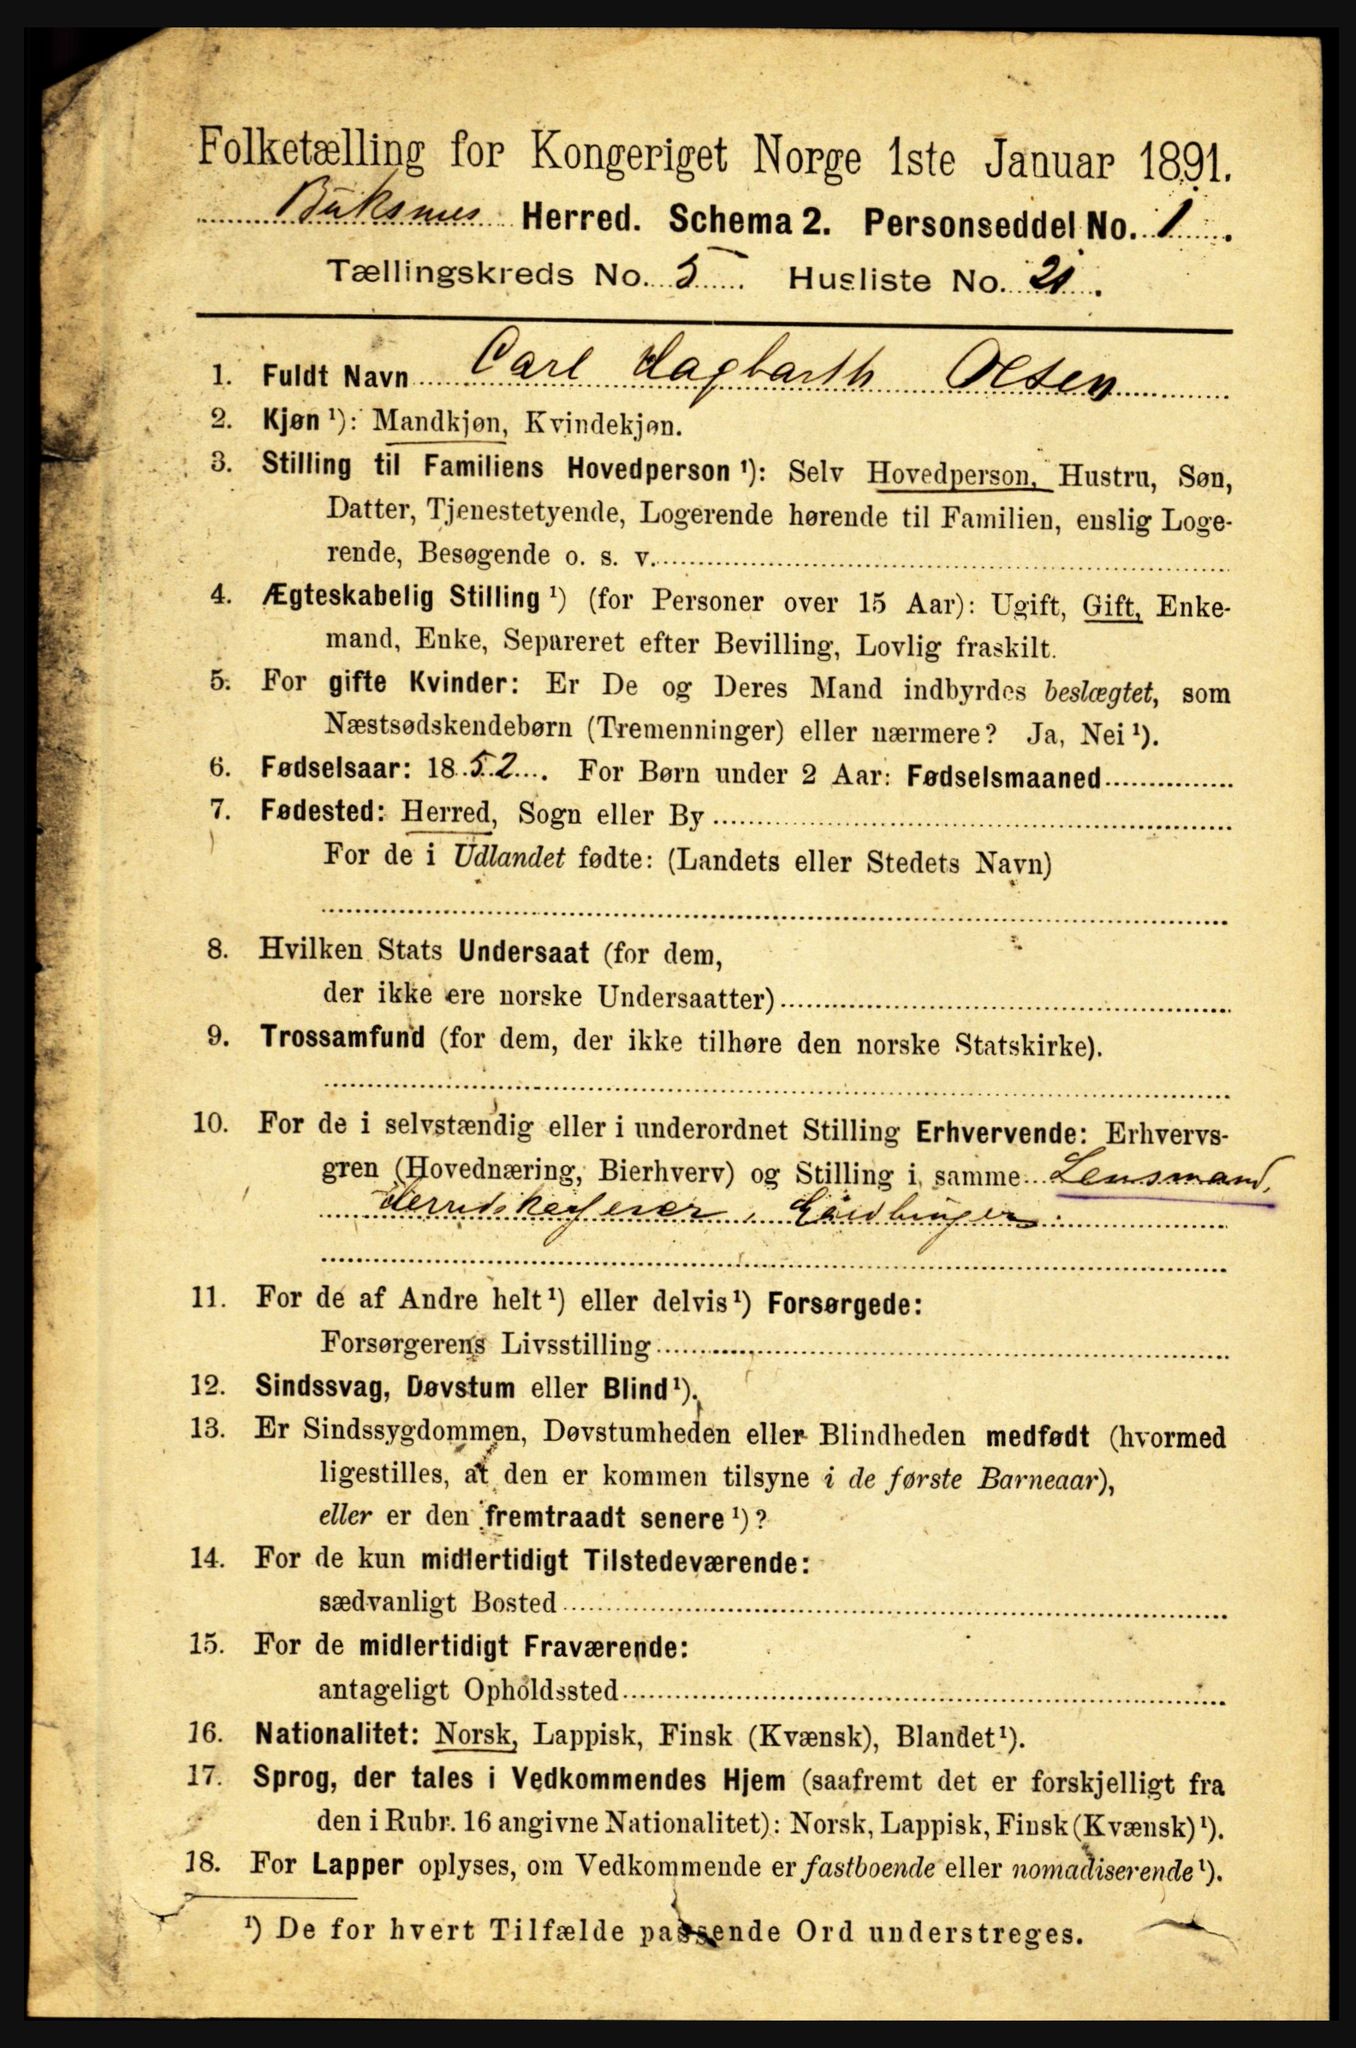 Folketælling for Kongeriget Norge 1ste Januar 1891.
Buksnes Herred. Schema 2. Personseddel No. 1.
Tællingskreds No. 5. Husliste No. 21.
1. Fuldt Navn Carl Hagbarth Olsen
2. Kjøn ¹): Mandkjøn, Kvindekjøn.
3. Stilling til Familiens Hovedperson ¹): Selv Hovedperson, Hustru, Søn,
Datter, Tjenestetyende, Logerende hørende til Familien, enslig Loge-
rende, Besøgende o. s. v.
4. Ægteskabelig Stilling ¹) (for Personer over 15 Aar): Ugift, Gift, Enke-
mand, Enke, Separeret efter Bevilling, Lovlig fraskilt.
5. For gifte Kvinder: Er De og Deres Mand indbyrdes beslægtet, som
Næstsødskendebørn (Tremenninger) eller nærmere? Ja, Nei ¹).
6. Fødselsaar: 1852. For Børn under 2 Aar: Fødselsmaaned
7. Fødested: Herred, Sogn eller By
For de i Udlandet fødte: (Landets eller Stedets Navn)
8. Hvilken Stats Undersaat (for dem,
der ikke ere norske Undersaatter)
9. Trossamfund (for dem, der ikke tilhøre den norske Statskirke).
10. For de i selvstændig eller i underordnet Stilling Erhvervende: Erhvervs-
gren (Hovednæring, Bierhverv) og Stilling i samme Lensmand,
Herredskasserer, Gaardbruger.
11. For de af Andre helt ¹) eller delvis ¹) Forsørgede:
Forsørgerens Livsstilling
12. Sindssvag, Døvstum eller Blind ¹).
13. Er Sindssygdommen, Døvstumheden eller Blindheden medfødt (hvormed
ligestilles, at den er kommen tilsyne i de første Barneaar),
eller er den fremtraadt senere ¹)?
14. For de kun midlertidigt Tilstedeværende:
sædvanligt Bosted
15. For de midlertidigt Fraværende:
antageligt Opholdssted
16. Nationalitet: Norsk, Lappisk, Finsk (Kvænsk), Blandet ¹).
17. Sprog, der tales i Vedkommendes Hjem (saafremt det er forskjelligt fra
den i Rubr. 16 angivne Nationalitet): Norsk, Lappisk, Finsk (Kvænsk) ¹).
18. For Lapper oplyses, om Vedkommende er fastboende eller nomadiserende ¹).
¹) De for hvert Tilfælde passende Ord understreges.